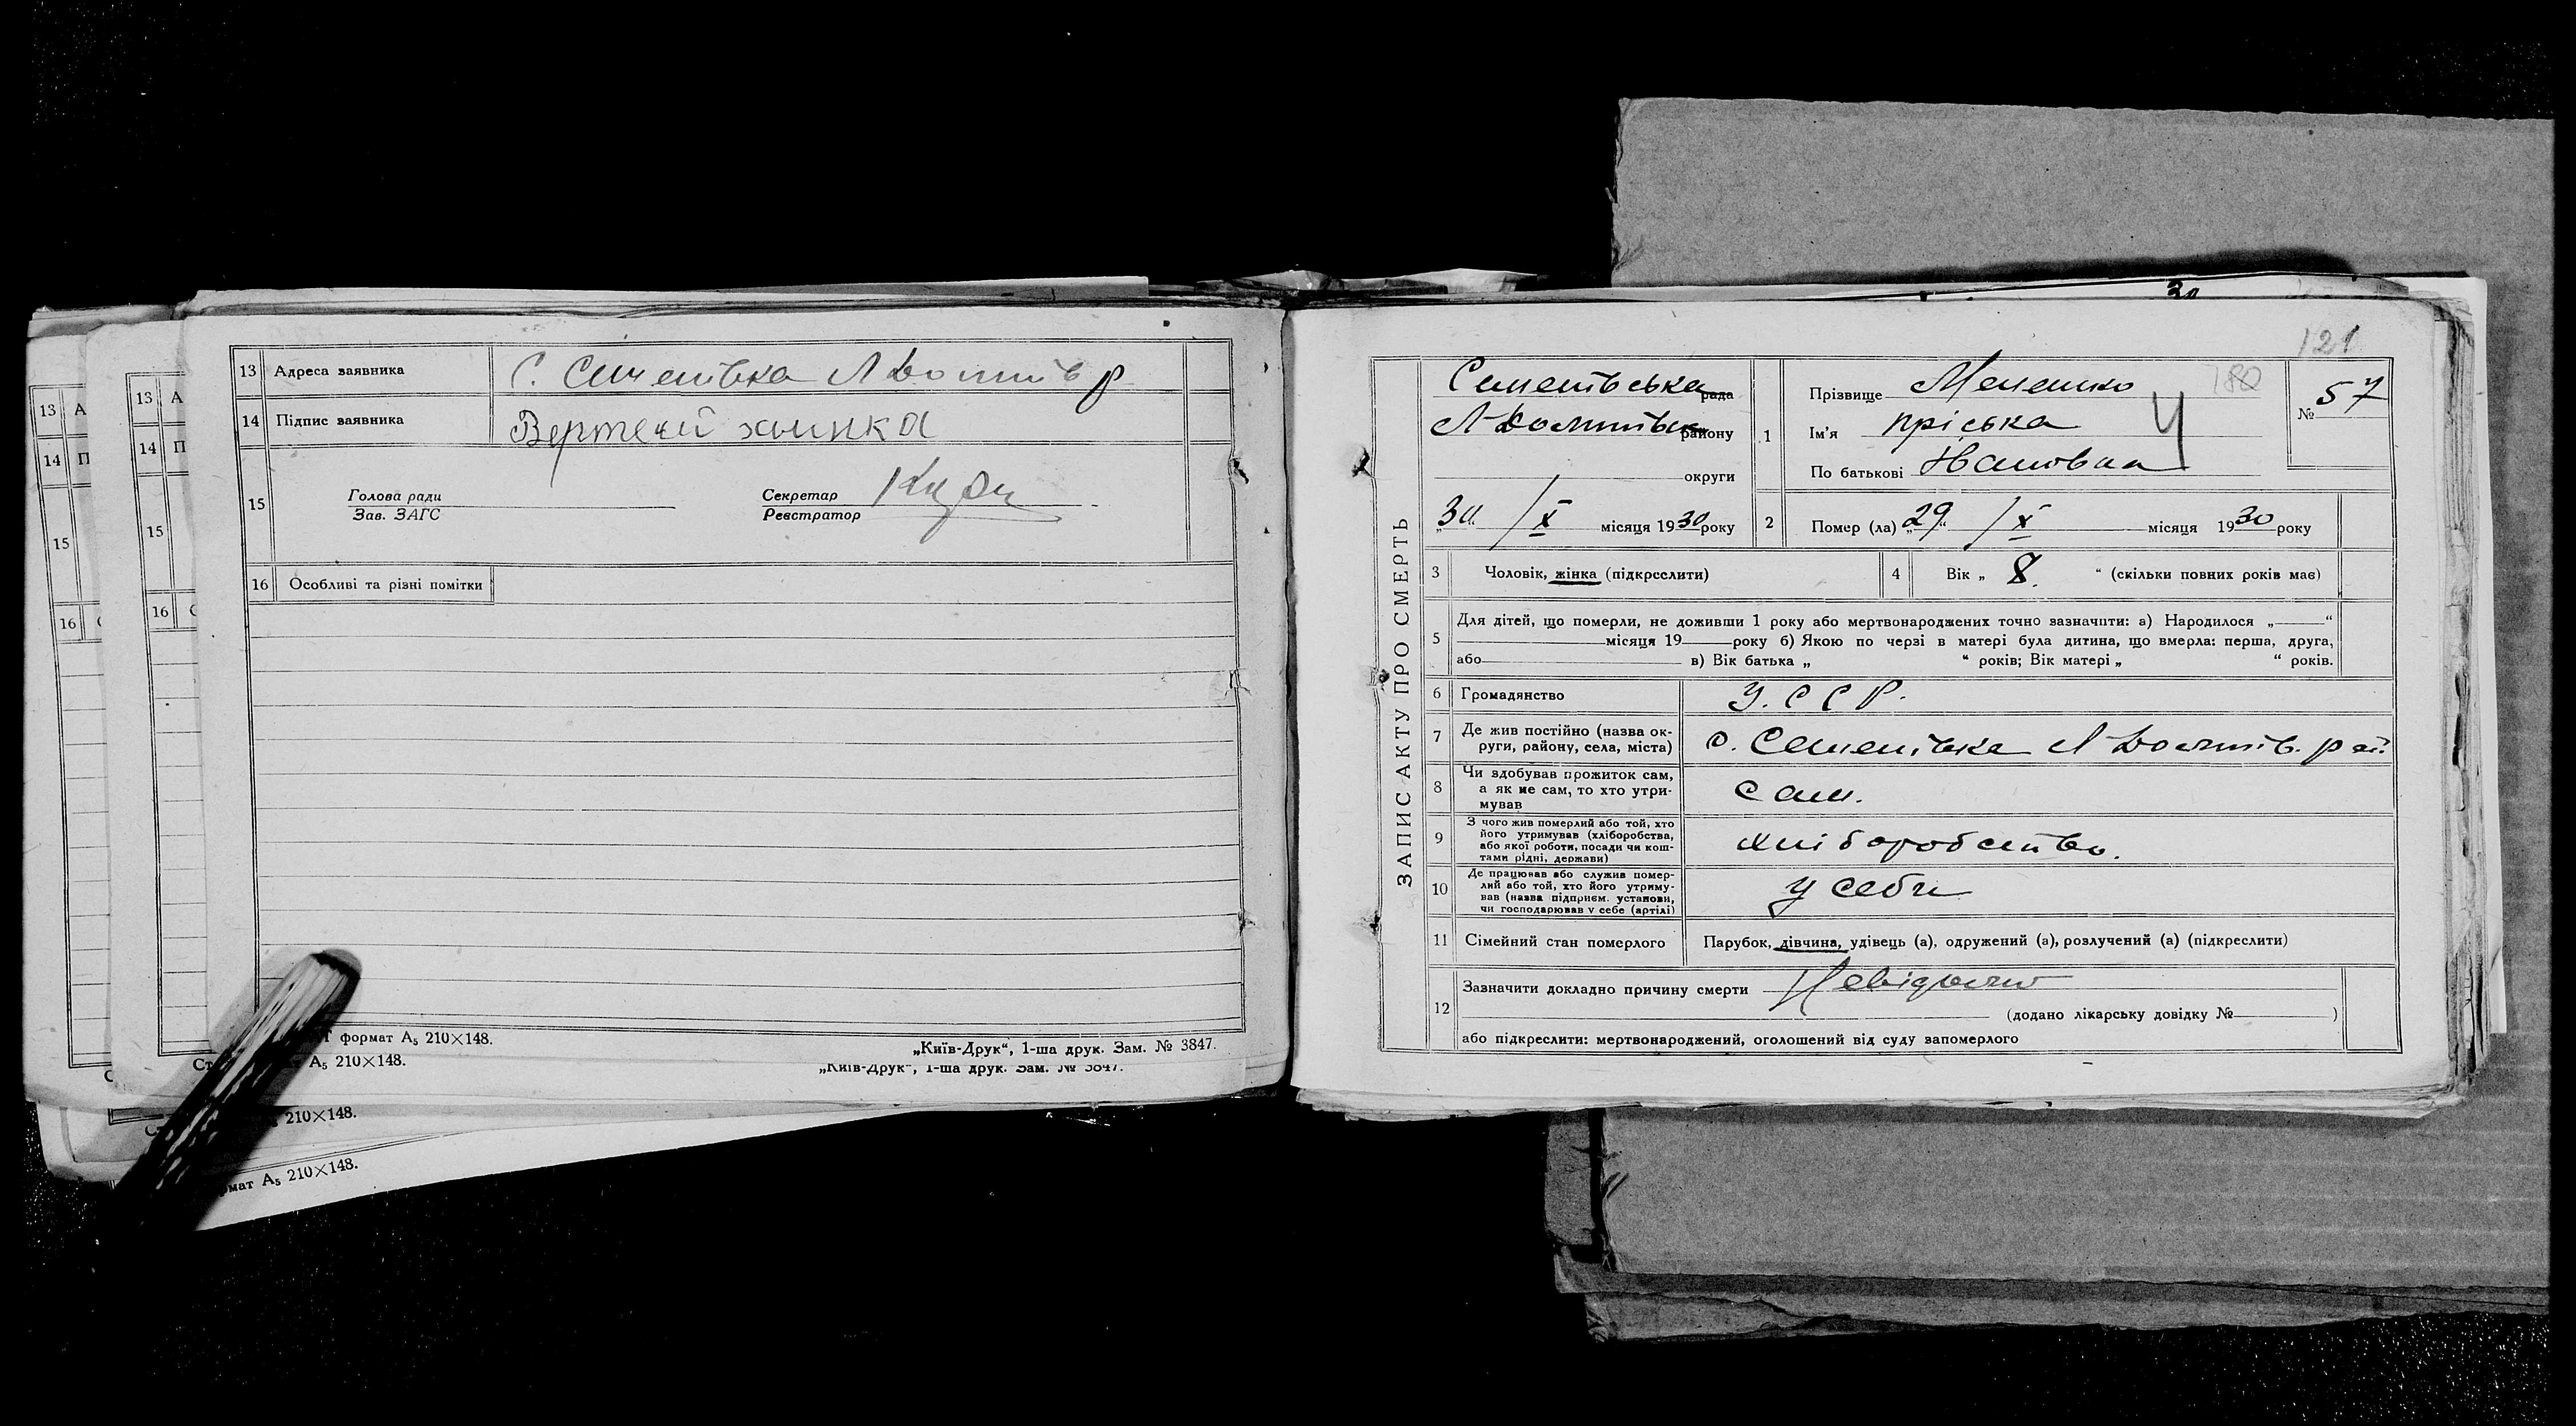 13 Адреса заявника С. Семенівка
14 Підпис заявника Вертечій химка
15 Голова ради
Зав. ЗАГС
Секретар
Реєстратор
16 Особливі та різні помітки
формат А₅ 210×148.
„Київ-Друк“, 1-ша друк. Зам. № 3847.
А₅ 210×148.
„Київ-Друк“, 1-ша друк. Зам. № 3847.
210×148.
А₅ 210×148.
121
180
ЗАПИС АКТУ ПРО СМЕРТЬ
Семенівська рада
району
округи
„30“ / X місяця 1930 року
1 Прізвище
Ім'я пріська
По батькові Івановна
№ 57
2 Помер (ла) „29“ / X місяця 1930 року
3 Чоловік, жінка (підкреслити)
4 Вік „ 8. “ (скільки повних років має)
5 Для дітей, що померли, не доживши 1 року або мертвонароджених точно зазначити: а) Народилося „ “
місяця 19 року б) Якою по черзі в матері була дитина, що вмерла: перша, друга,
або в) Вік батька „ “ років; Вік матері „ “ років.
6 Громадянство У. С С Р.
7 Де жив постійно (назва ок-
руги, району, села, міста) с. Семенівка рай.
8 Чи здобував прожиток сам,
а як не сам, то хто утри-
мував
сам.
9 З чого жив померлий або той, хто
його утримував (хліборобства,
або якої роботи, посади чи кош-
тами рідні, держави)
хліборобство.
10 Де працював або служив помер-
лий або той, хто його утриму-
вав (назва підприєм. установи,
чи господарював у себе (артілі)
у себе
11 Сімейний стан померлого Парубок, дівчина, удівець (а), одружений (а), розлучений (а) (підкреслити)
12 Зазначити докладно причину смерти Невідомо
(додано лікарську довідку № )
або підкреслити: мертвонароджений, оголошений від суду запомерлого